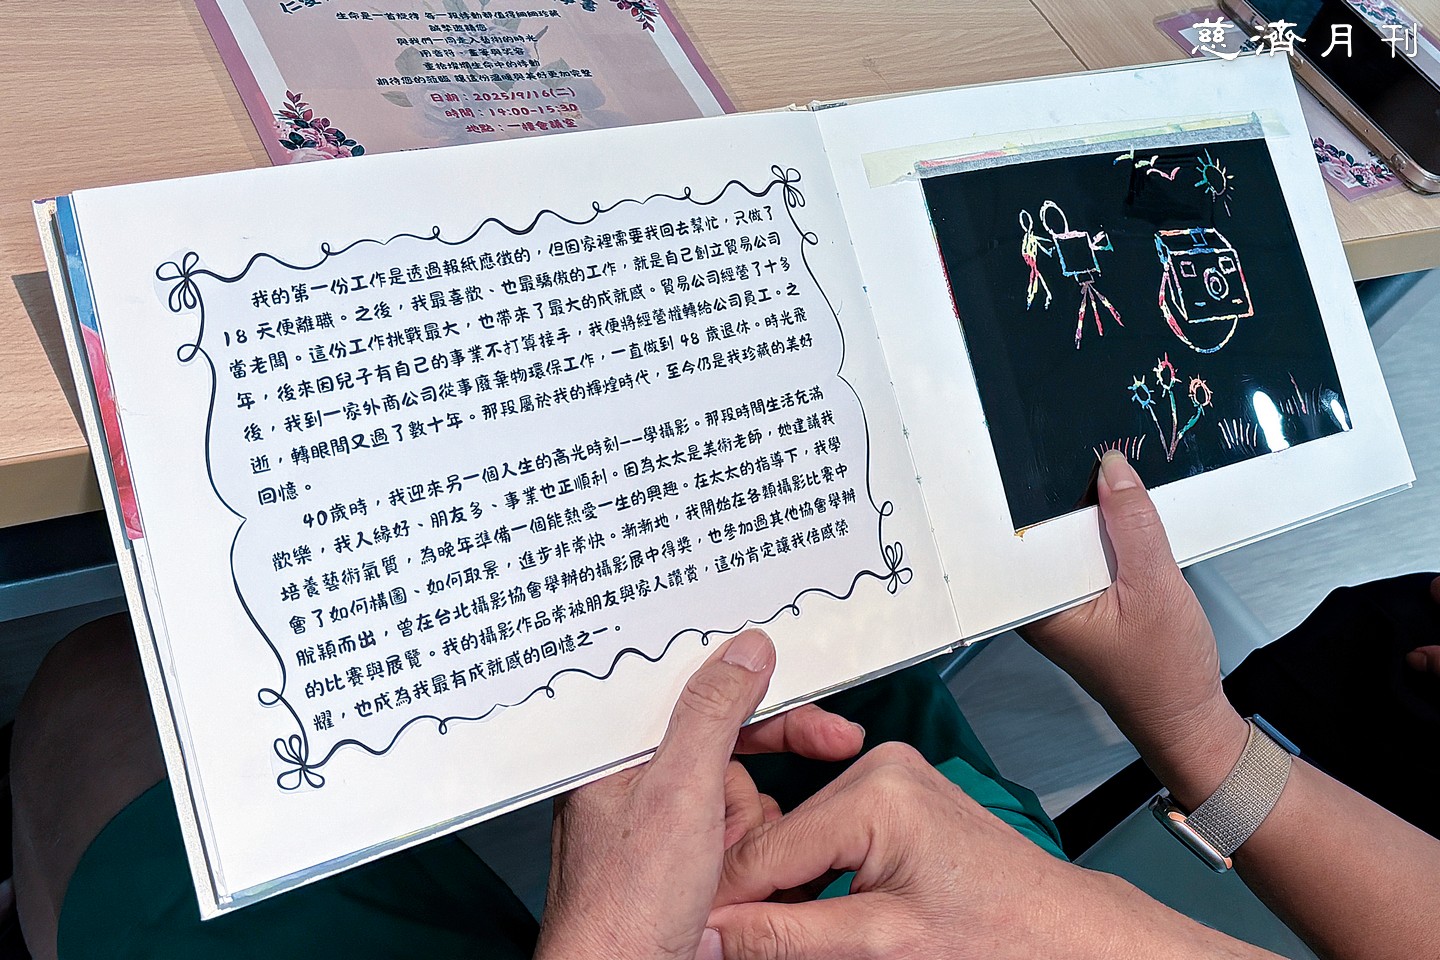 生命是一首旋律 每一段樂動都值得細細珍藏
誠摯邀請您
與我們一同走入藝術的時光
用音符、畫筆與笑容
重拾燦爛生命中的樂動
期待您的蒞臨 讓這份溫暖與美好更加完整
日期：2025/9/16(二)
時間：14:00-15:30
地點：一樓會議室
慈濟月刊
我的第一份工作是透過報紙應徵的，但因家裡需要我回去幫忙，只做了
18 天便離職。之後，我最喜歡、也最驕傲的工作，就是自己創立貿易公司
當老闆。這份工作挑戰最大，也帶來了最大的成就感。貿易公司經營了十多
年，後來因兒子有自己的事業不打算接手，我便將經營權轉給公司員工。之
後，我到一家外商公司從事廢棄物環保工作，一直做到 48 歲退休。時光飛
逝，轉眼間又過了數十年。那段屬於我的輝煌時代，至今仍是我珍藏的美好
回憶。
40歲時，我迎來另一個人生的高光時刻——學攝影。那段時間生活充滿
歡樂，我人緣好、朋友多、事業也正順利。因為太太是美術老師，她建議我
培養藝術氣質，為晚年準備一個能熱愛一生的興趣。在太太的指導下，我學
會了如何構圖、如何取景，進步非常快。漸漸地，我開始在各類攝影比賽中
脫穎而出，曾在台北攝影協會舉辦的攝影展中得獎，也參加過其他協會舉辦
的比賽與展覽。我的攝影作品常被朋友與家人讚賞，這份肯定讓我倍感榮
耀，也成為我最有成就感的回憶之一。